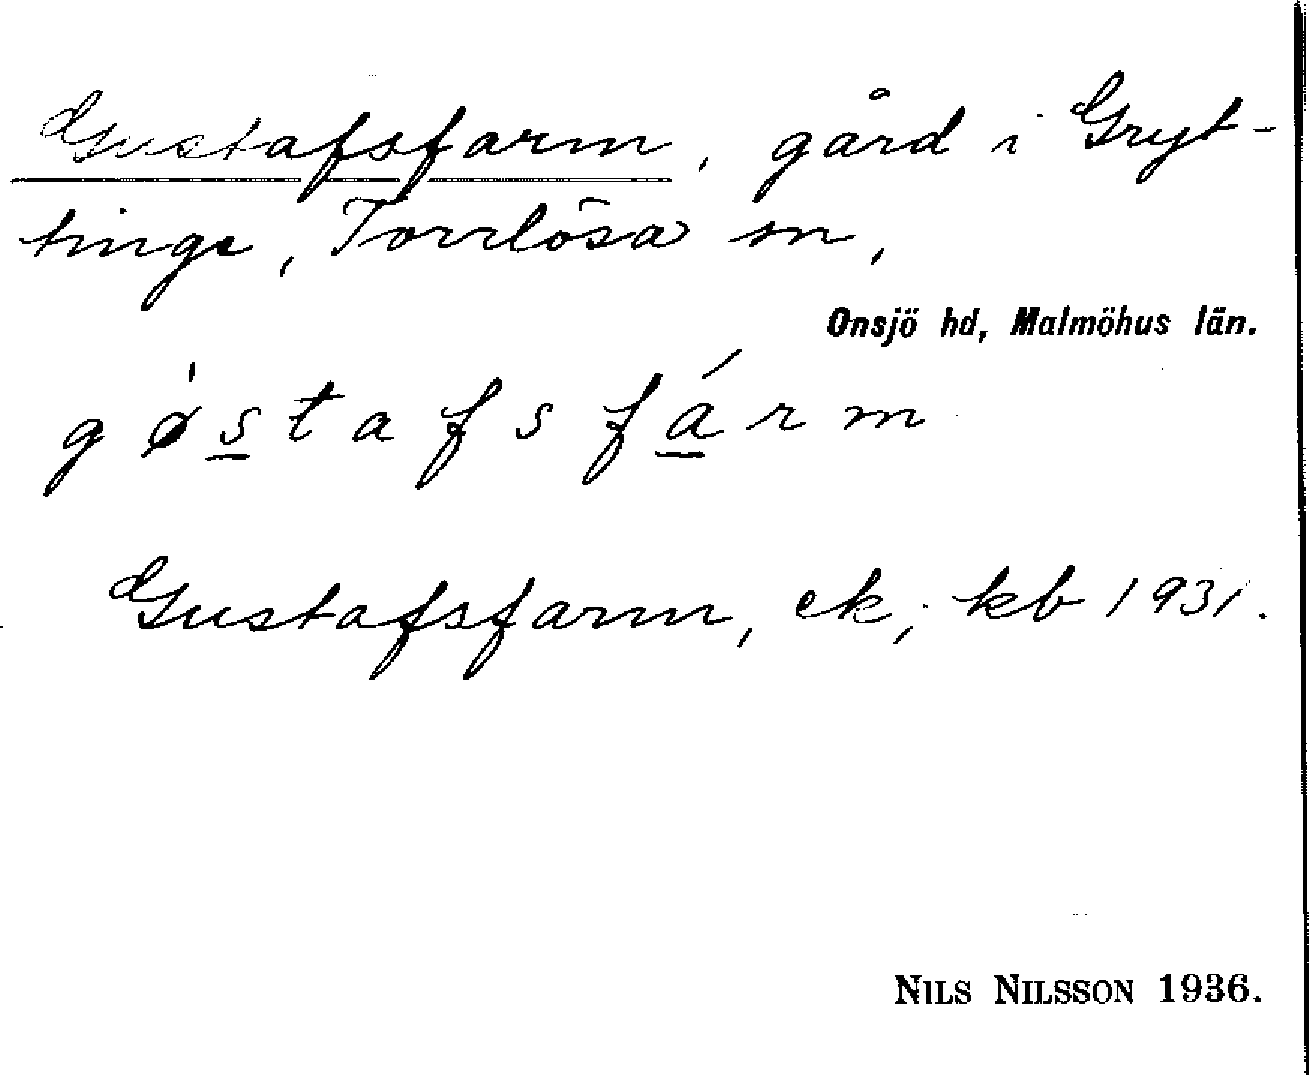 Gustafsfarm, gård i Gryt-
tinge, Torrlösa sn,
Onsjö hd, Malmöhus län.
gǿstafsfárm
Gustafsfarm, ek; kb 1931.
NILS NILSSON 1936.